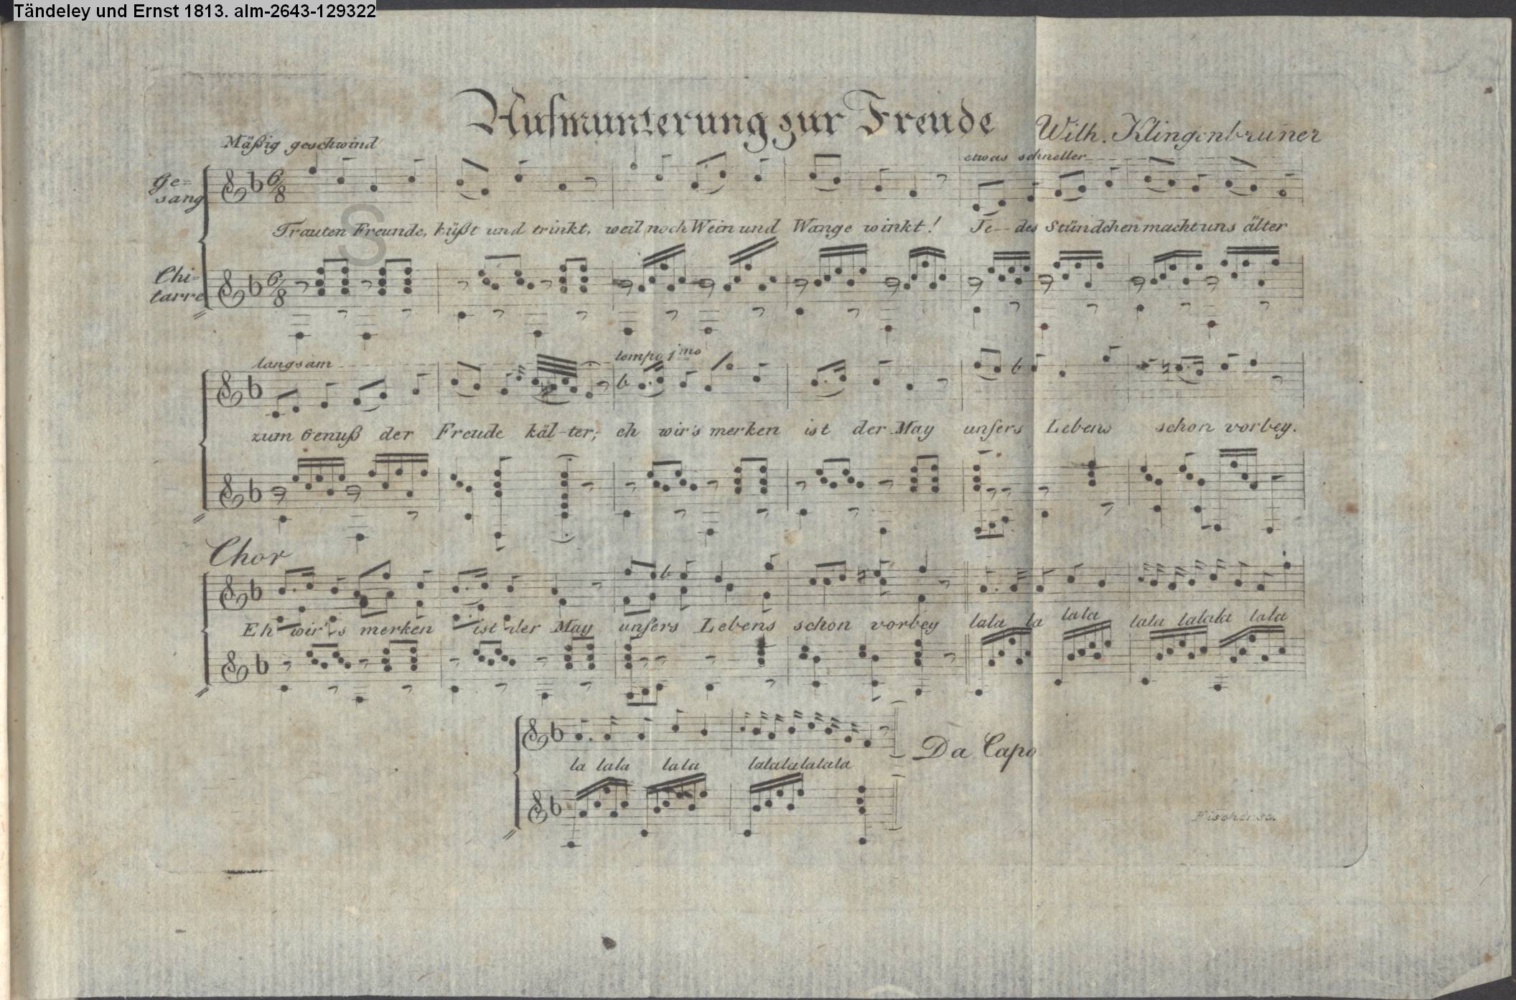 Tändeley und Ernst 1813. alm-2643-129322
Aufmunterung zur Freude
Wilh. Klingenbrunner
Mäßig geschwind
etwas schneller
Ge-
sang
Trauten Freunde, küßt und trinkt, weil noch Wein und Wange winkt! Je-- des Stündchen macht uns älter
Chi-
tarre
langsam
tempo 1mo
zum Genuß der Freude käl-ter; eh wir's merken ist der May unsers Lebens schon vorbey.
Chor
Eh wir's merken ist der May unsers Lebens schon vorbey lala la lala lala lalala lala
la lala lala lalalalalala
Da Capo
Fischer sc.